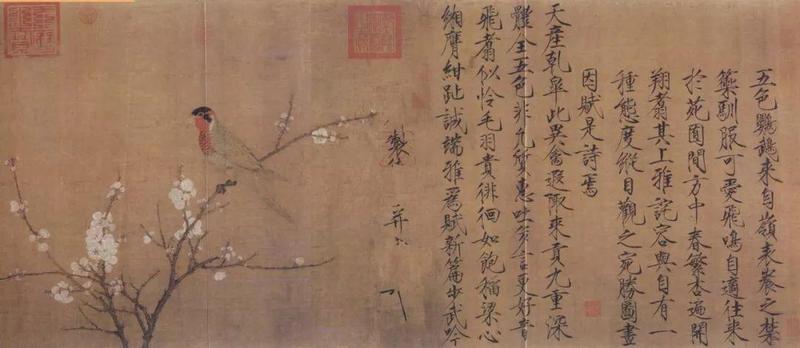 五色鸚鵡来自嶺表養之禁
籞馴服可愛飛鳴自適往来
於苑囿間方中春繁杏遍開
翔翥其上雅詫容與自有一
種態度縱目觀之宛勝圖畫
因賦是詩焉
天産乾皋此異禽遐陬来貢九重深
體全五色非凡質惠吐多言更好音
飛翥似憐毛羽貴徘徊如飽稲粱心
緗膺紺趾誠端雅為賦新篇步武吟